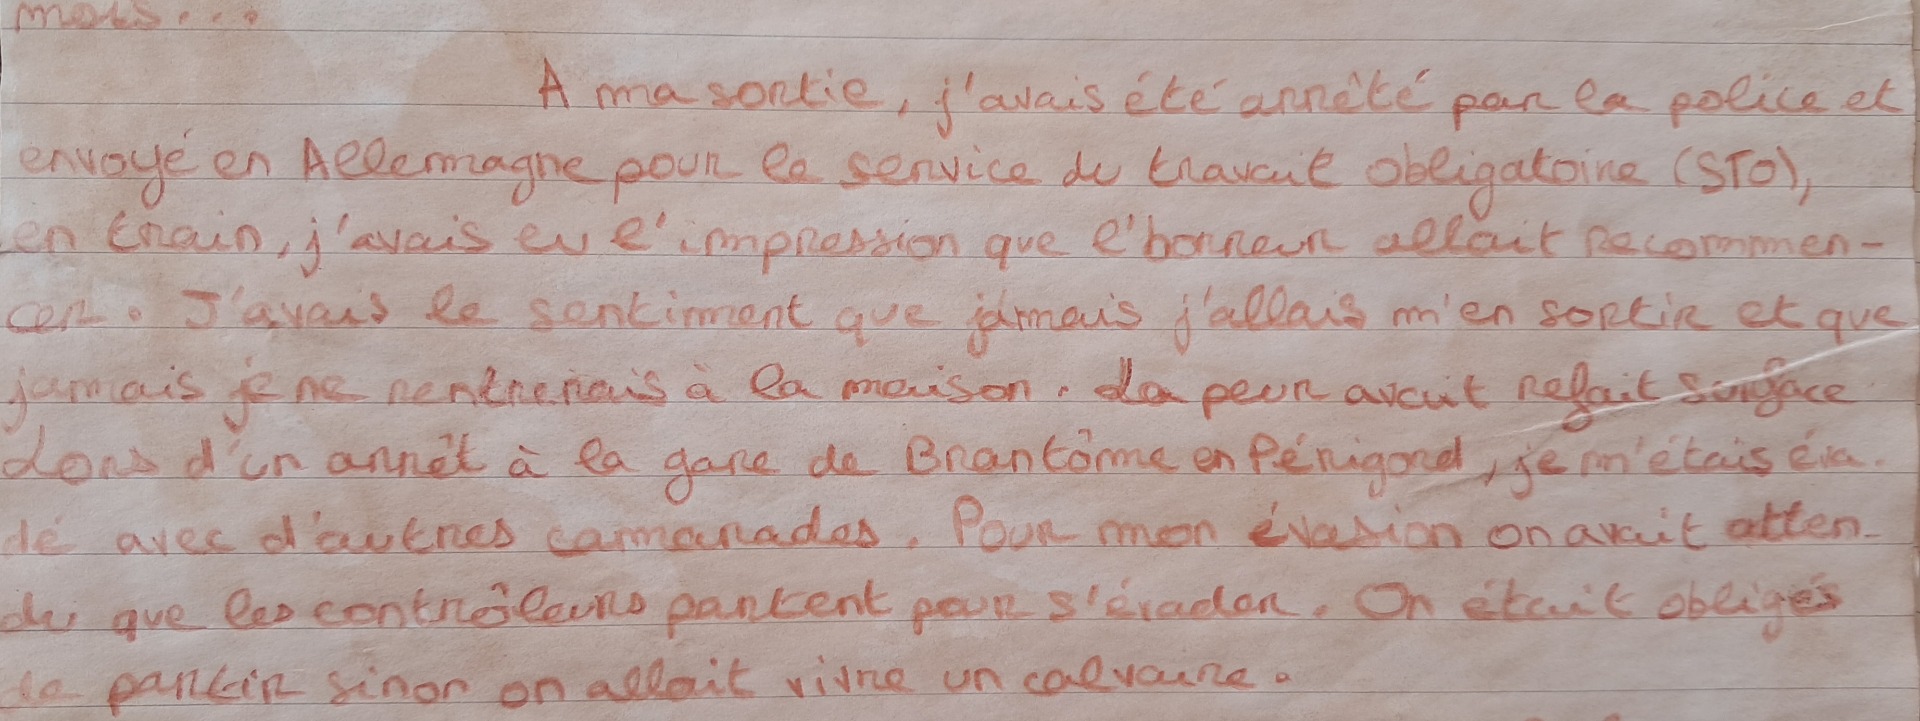 mois...
A ma sortie, j'avais été arrêté par la police et
envoyé en Allemagne pour le service du travail obligatoire (STO),
en train, j'avais eu l'impression que l'horreur allait recommen-
cer. J'avais le sentiment que jamais j'allais m'en sortir et que
jamais je ne rentrerais à la maison. La peur avait refait surface
lors d'un arrêt à la gare de Brantôme en Périgord, je m'étais éva-
dé avec d'autres camarades. Pour mon évasion on avait atten-
du que les contrôleurs partent pour s'évader. On était obligés
de partir sinon on allait vivre un calvaire.